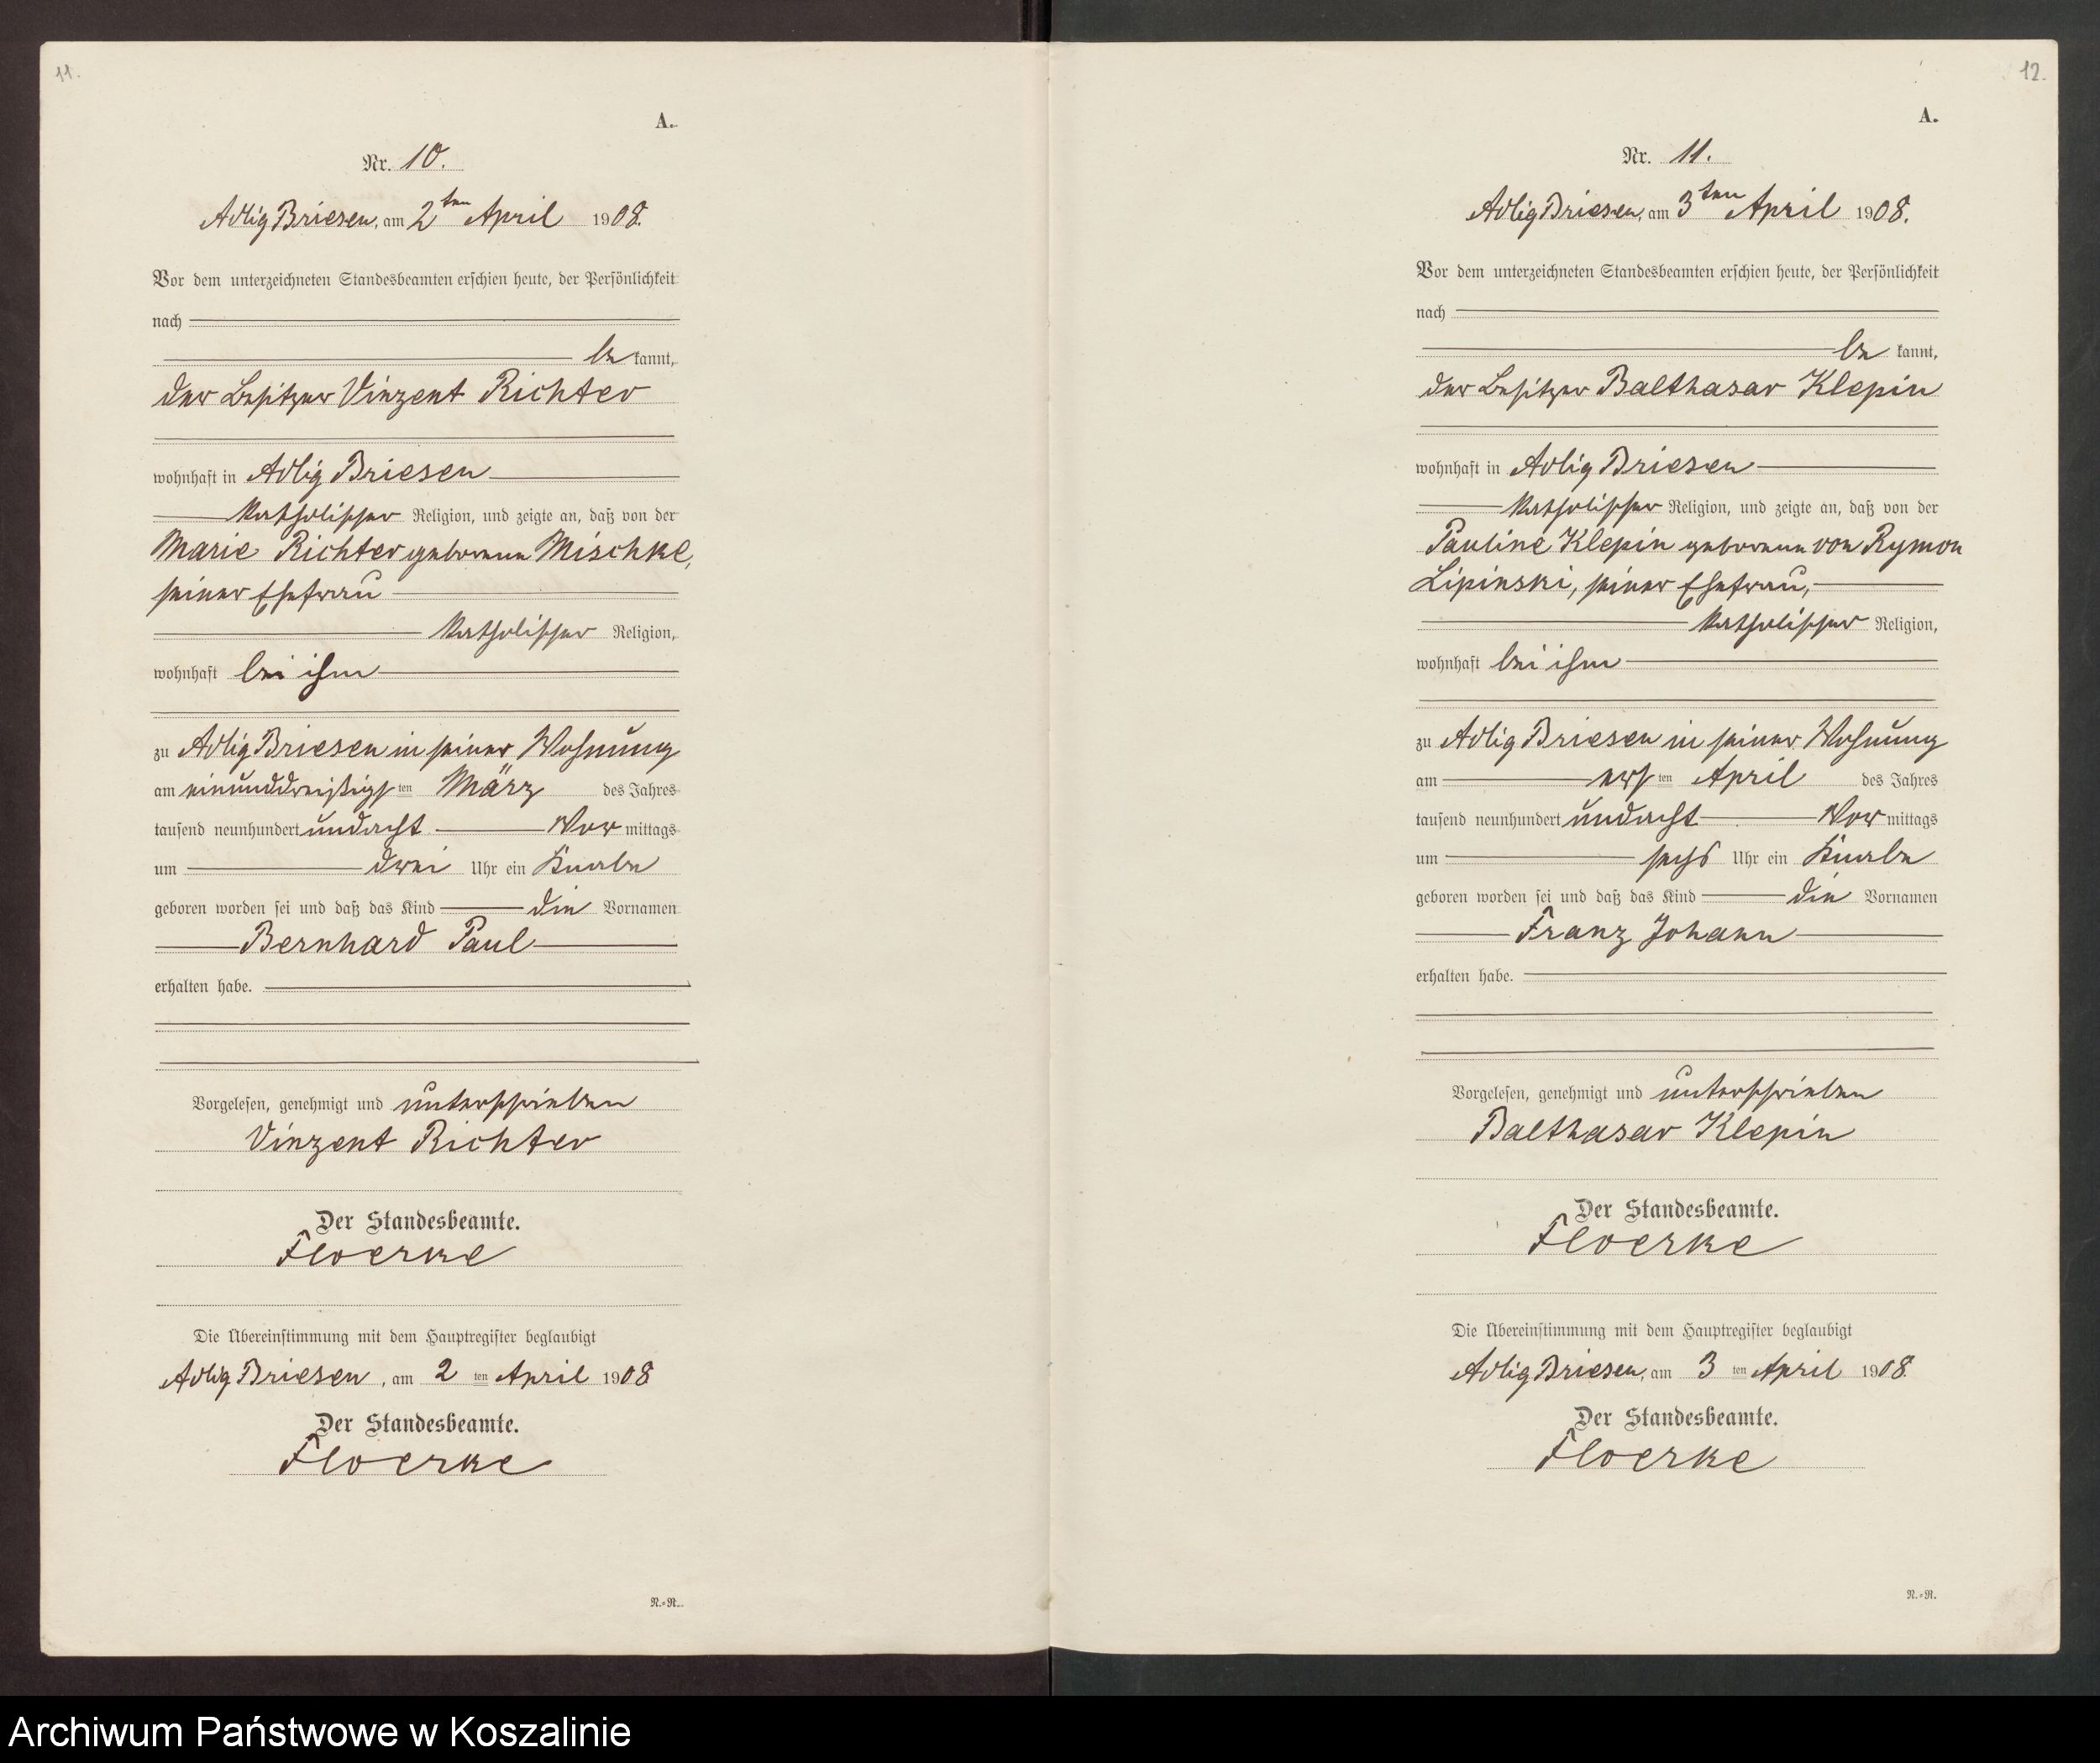 11.
A.
Nr. 10.
Adlig Briesen, am 2ten April 1908.
Vor dem unterzeichneten Standesbeamten erschien heute, der Persönlichkeit
nach
be kannt,
der Besitzer Vinzent Richter
wohnhaft in Adlig Briesen
katholischer Religion, und zeigte an, daß von der
Marie Richter geborenen Mischke,
seiner Ehefrau
katholischer Religion,
wohnhaft bei ihm
zu Adlig Briesen in seiner Wohnung
am einunddreißigsten März des Jahres
tausend neunhundert undacht Vormittags
um drei Uhr ein Knabe
geboren worden sei und daß das Kind die Vornamen
Bernhard Paul
erhalten habe.
Vorgelesen, genehmigt und unterschrieben
Vinzent Richter
Der Standesbeamte.
Floerke
Die Übereinstimmung mit dem Hauptregister beglaubigt
Adlig Briesen, am 2ten April 1908
Der Standesbeamte.
Floerke
N.=R.
12.
A.
Nr. 11.
Adlig Briesen, am 3ten April 1908.
Vor dem unterzeichneten Standesbeamten erschien heute, der Persönlichkeit
nach
be kannt,
der Besitzer Balthasar Klepin
wohnhaft in Adlig Briesen
katholischer Religion, und zeigte an, daß von der
Pauline Klepin geborenen von Rymon
Lipinski, seiner Ehefrau,
katholischer Religion,
wohnhaft bei ihm
zu Adlig Briesen in seiner Wohnung
am ersten April des Jahres
tausend neunhundert undacht Vormittags
um sechs Uhr ein Knabe
geboren worden sei und daß das Kind die Vornamen
Franz Johann
erhalten habe.
Vorgelesen, genehmigt und unterschrieben
Balthasar Klepin
Der Standesbeamte.
Floerke
Die Übereinstimmung mit dem Hauptregister beglaubigt
Adlig Briesen, am 3ten April 1908.
Der Standesbeamte.
Floerke
N.=R.
Archiwum Państwowe w Koszalinie